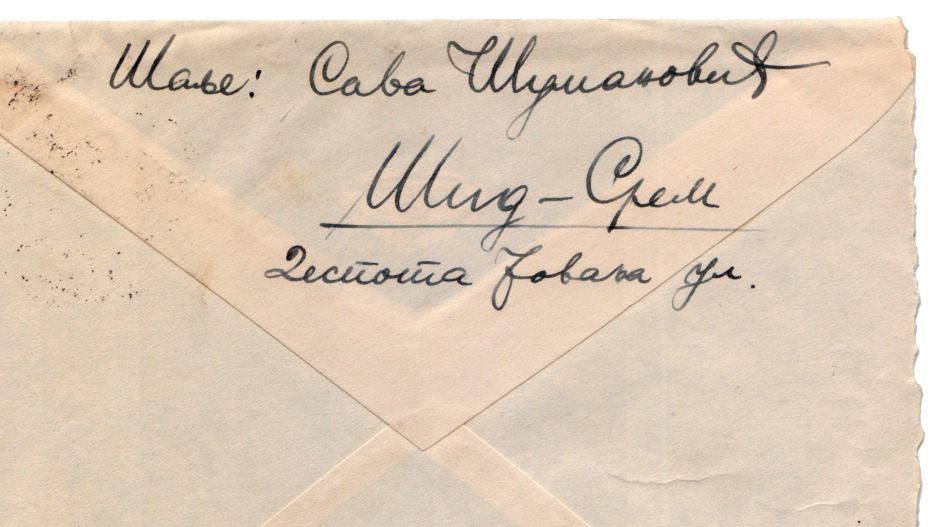 Шаље: Сава Шумановић
Шид – Срем
Деспота Јована ул.